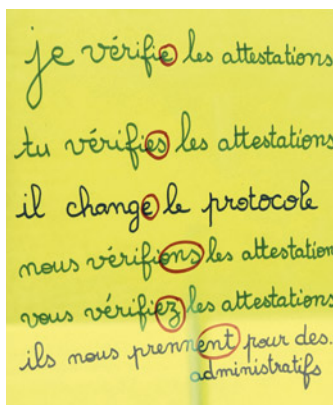 je vérifie les attestations
tu vérifies les attestations
il change le protocole
nous vérifions les attestation
vous vérifiez les attestations
ils nous prennent pour des.
administratifs